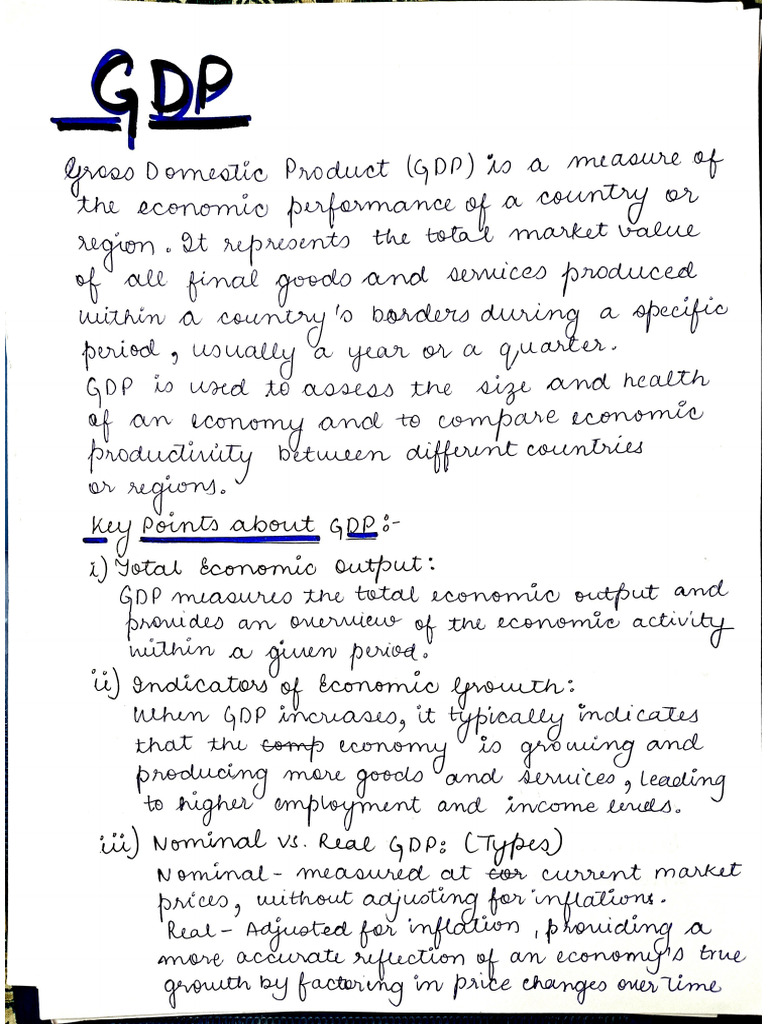 GDP
Gross Domestic Product (GDP) is a measure of
the economic performance of a country or
region. It represents the total market value
of all final goods and services produced
within a country's borders during a specific
period, usually a year or a quarter.
GDP is used to assess the size and health
of an economy and to compare economic
productivity between different countries
or regions.
Key Points about GDP:-
i) Total Economic Output:
GDP measures the total economic output and
provides an overview of the economic activity
within a given period.
ii) Indicators of Economic Growth:
When GDP increases, it typically indicates
that the comp economy is growing and
producing more goods and services, leading
to higher employment and income levels.
iii) Nominal vs. Real GDP: (Types)
Nominal - measured at cor current market
prices, without adjusting for inflations.
Real - Adjusted for inflation, providing a
more accurate reflection of an economy's true
growth by factoring in price changes over time